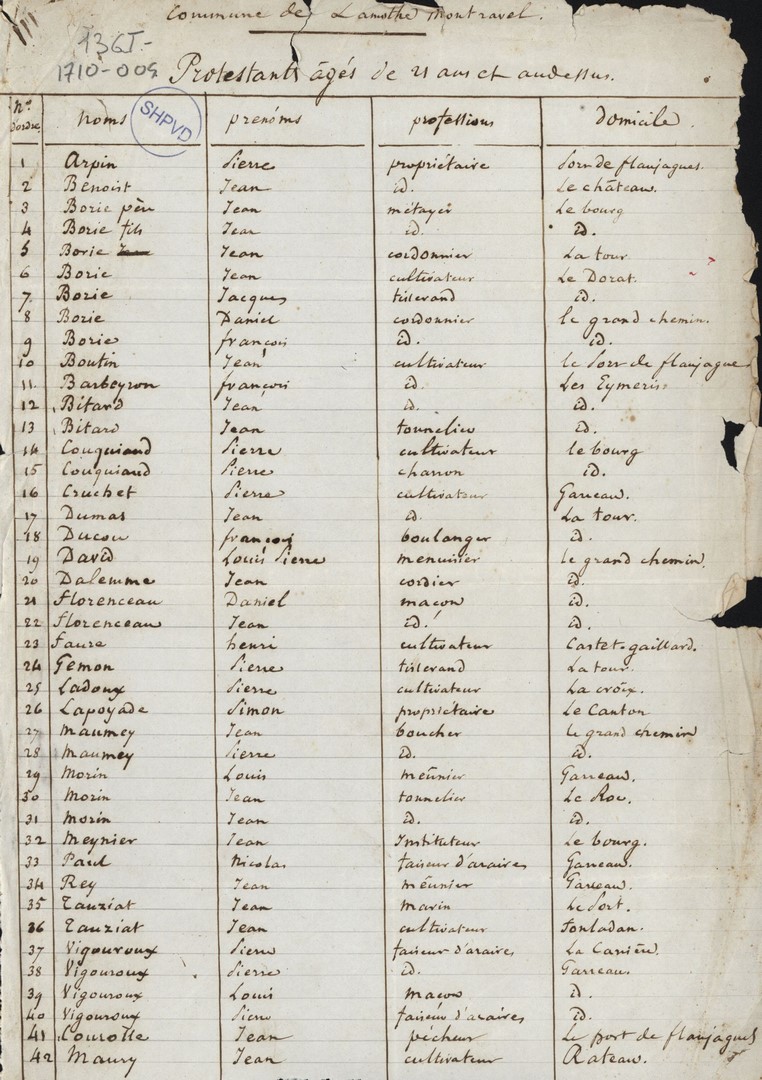 Commune de Lamothe Montravel.
136J-
1710-009
Protestants âgés de 21 ans et audessus.
SHPVD
nos d'ordre noms prénoms professions domicile
1 Arpin Pierre propriétaire Port de flaujagues.
2 Benoist Jean id. Le château.
3 Borie père Jean métayer Le bourg
4 Borie fils Jean id. id.
5 Borie Jean cordonnier La tour
6 Borie Jean cultivateur Le Dorat.
7 Borie Jacques tisserand id.
8 Borie Daniel cordonnier le grand chemin.
9 Borie françois id. id.
10 Boutin Jean cultivateur le Port de flaujagues
11 Barbeyron françois id. Les Eymeris
12 Bitard Jean id. id.
13 Bitard Jean tonnelier id.
14 Couquiaud Pierre cultivateur le bourg
15 Couquiaud Pierre charron id.
16 Cruchet Pierre cultivateur Garreau.
17 Dumas Jean id. La tour.
18 Ducou françois boulanger id.
19 David Louis Pierre menuisier le grand chemin.
20 Dalemme Jean cordier id.
21 florenceau Daniel maçon id.
22 florenceau Jean id. id.
23 faure henri cultivateur Castet-gaillard.
24 Gemon Pierre tisserand La tour.
25 Ladoux Pierre cultivateur La croix.
26 Lapoyade Simon propriétaire Le Canton
27 Maumey Jean boucher le grand chemin
28 Maumey Pierre id. id.
29 Morin Louis meûnier Garreau.
30 Morin Jean tonnelier Le Roc.
31 Morin Jean id. id.
32 Meynier Jean Instituteur Le bourg.
33 Paul Nicolas faiseur d'araires Garreau.
34 Rey Jean meûnier Garreau.
35 Tauziat Jean marin Le Port.
36 Tauziat Jean cultivateur fonladan.
37 Vigouroux Pierre faiseur d'araires La
38 Vigouroux Pierre id. Garreau.
39 Vigouroux Louis maçon id.
40 Vigouroux Pierre faiseur d'araires id.
41 Courotte Jean pêcheur Le port de flaujagues
42 Maury Jean cultivateur Rateau.